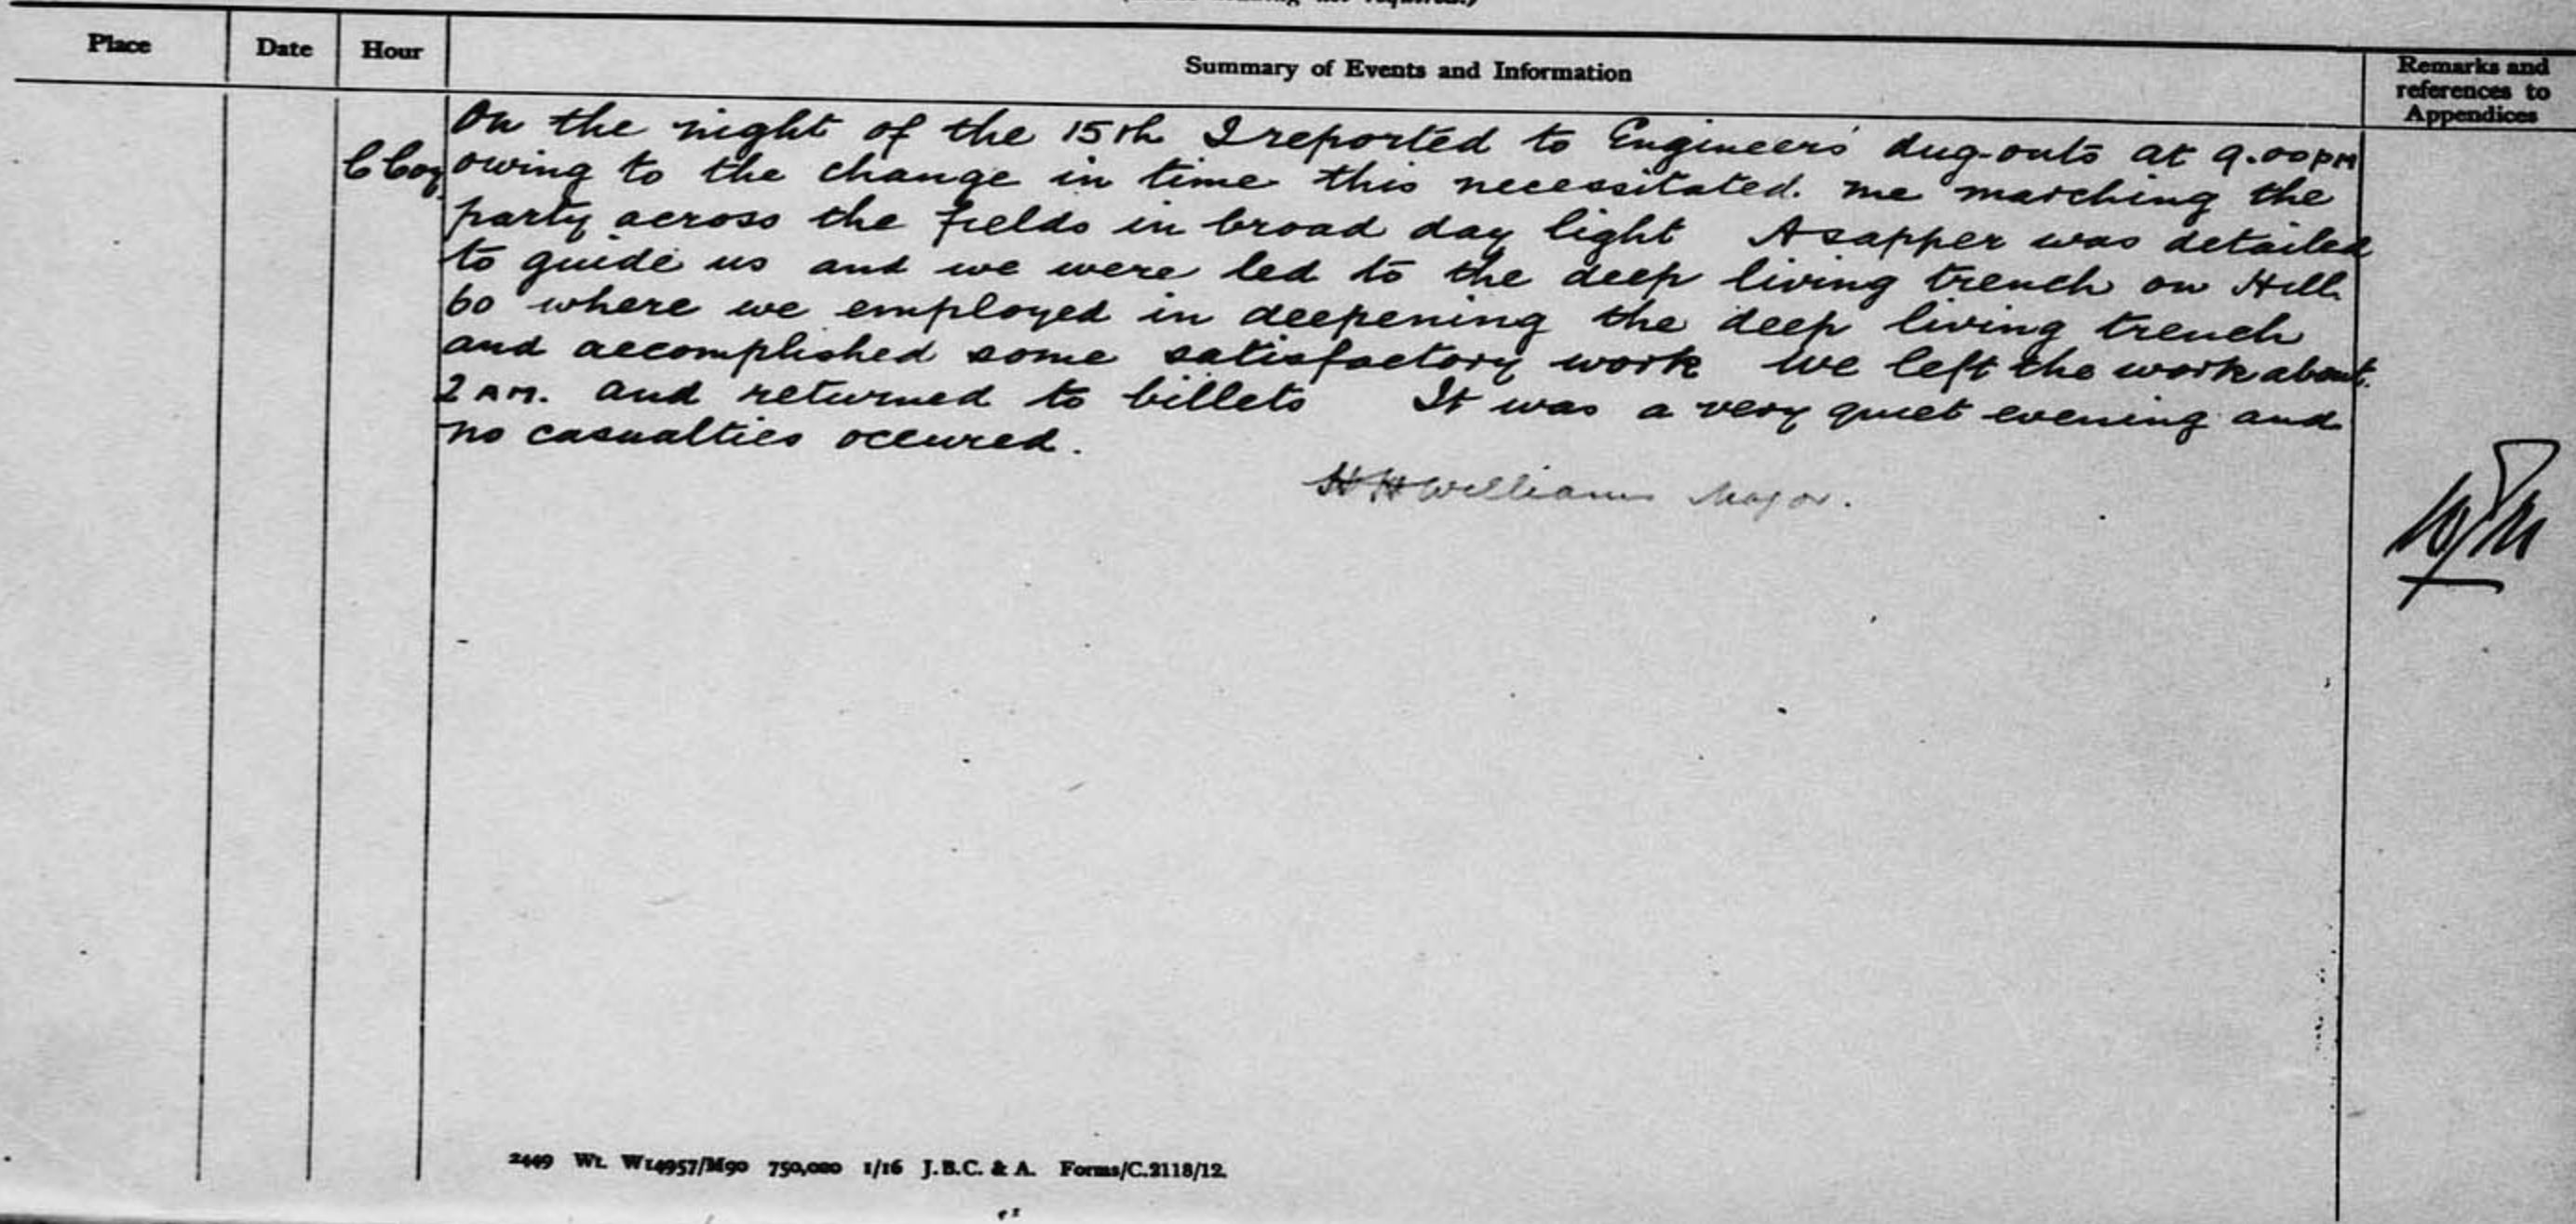 Place Date Hour Summary of Events and Information Remarks and references to Appendices
On the night of the 15th I reported to Engineers' dug-outs at 9.00 pm
C Coy owing to the change in time this necessitated. me marching the
party across the fields in broad day light A sapper was detailed
to guide us and we were led to the deep living trench on Hill
60 where we employed in deepening the deep living trench
and accomplished some satisfactory work we left the work about.
2 AM. and returned to billets It was a very quiet evening and
no casualties occured.
H H Williams Major.
2449 Wt. W14957/M90 750,000 1/16 J.B.C. & A. Forms/C.2118/12.